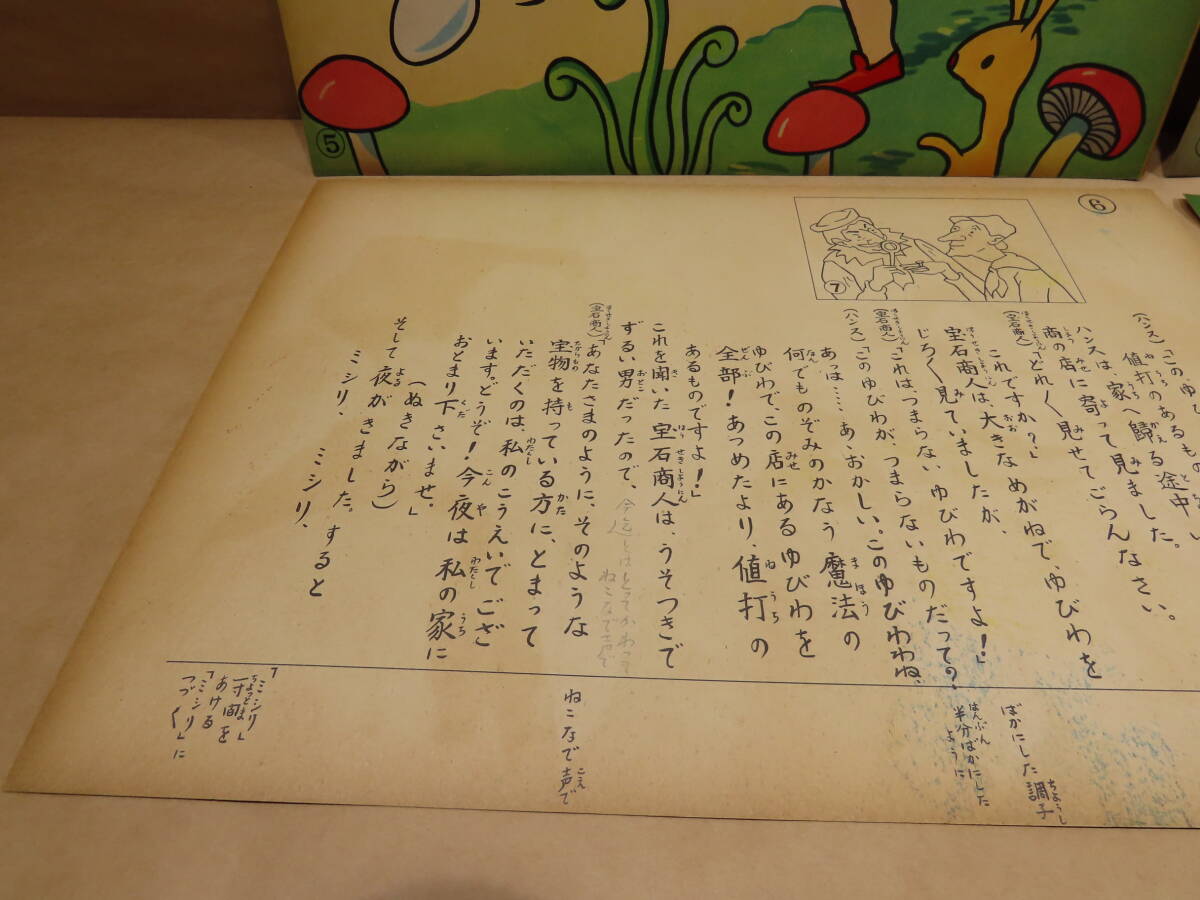 ⑤
⑥
⑦
(ハンス)「このゆび
値打のあるもの
ハンスは、家へ歸る途中
商の店に寄って見ました。
(宝石商人)「どれ〱見せてごらんなさい。
これですか?」
宝石商人は、大きなめがねで、ゆびわを
じろ〱見ていましたが、
(宝石商人)「これは、つまらないゆびわですよ!」
(ハンス)「このゆびわが、つまらないものだって?、
あっは……あゝおかしい。このゆびわわね、
何でものぞみのかなう魔法の
ゆびわで、この店にあるゆびわを
全部!あつめたより、値打の
あるものですよ!」
これを聞いた宝石商人は、うそつきで
ずるい男だったので、
今迄とはとってかわって
ねこなで声で
(宝石商人)「あなたさまのように、そのような
宝物を持っている方に、とまって
いただくのは、私のこうえいでござ
います。どうぞ!今夜は私の家に
おとまり下さいませ。」
(ぬきながら)
そして夜がきました。すると
ミシリ、ミシリ、
ばかにした調子
半分ばかにした
ように
ねこなで声で
「ミシリ」
一寸間を
あける
「ミシリ」に
つづく